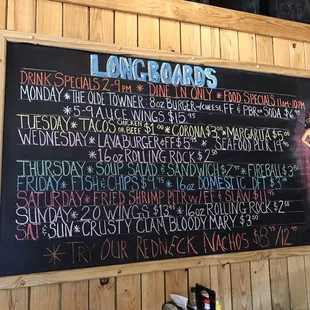 LONGBOARDS
DRINK SPECIALS 2-9PM * DINE IN ONLY * FOOD SPECIALS 11AM-10PM
MONDAY * THE OLDE TOWNER - 8oz BURGER w/CHEESE, FF & PBR OR SODA $6.95
* 5-9 ALL U CAN WINGS $15.95
TUESDAY * TACOS CHICKEN OR BEEF $1.00 * CORONA $3 * MARGARITA $5
WEDNESDAY * LAVABURGER & FF $5 * SEAFOOD PLTR 19.95
* 16oz ROLLING ROCK $2
THURSDAY * SOUP, SALAD & SANDWICH $7.95 * FIREBALL $3
FRIDAY * FISH & CHIPS $9 * 16oz DOMESTIC DFT $3
SATURDAY * FRIED SHRIMP PLTR w/FF & SLAW $11
SUNDAY * 20 WINGS $13 * 16oz ROLLING ROCK $2
SAT & SUN * CRUSTY CLAM BLOODY MARY $3.50
* TRY OUR REDNECK NACHOS $8/12